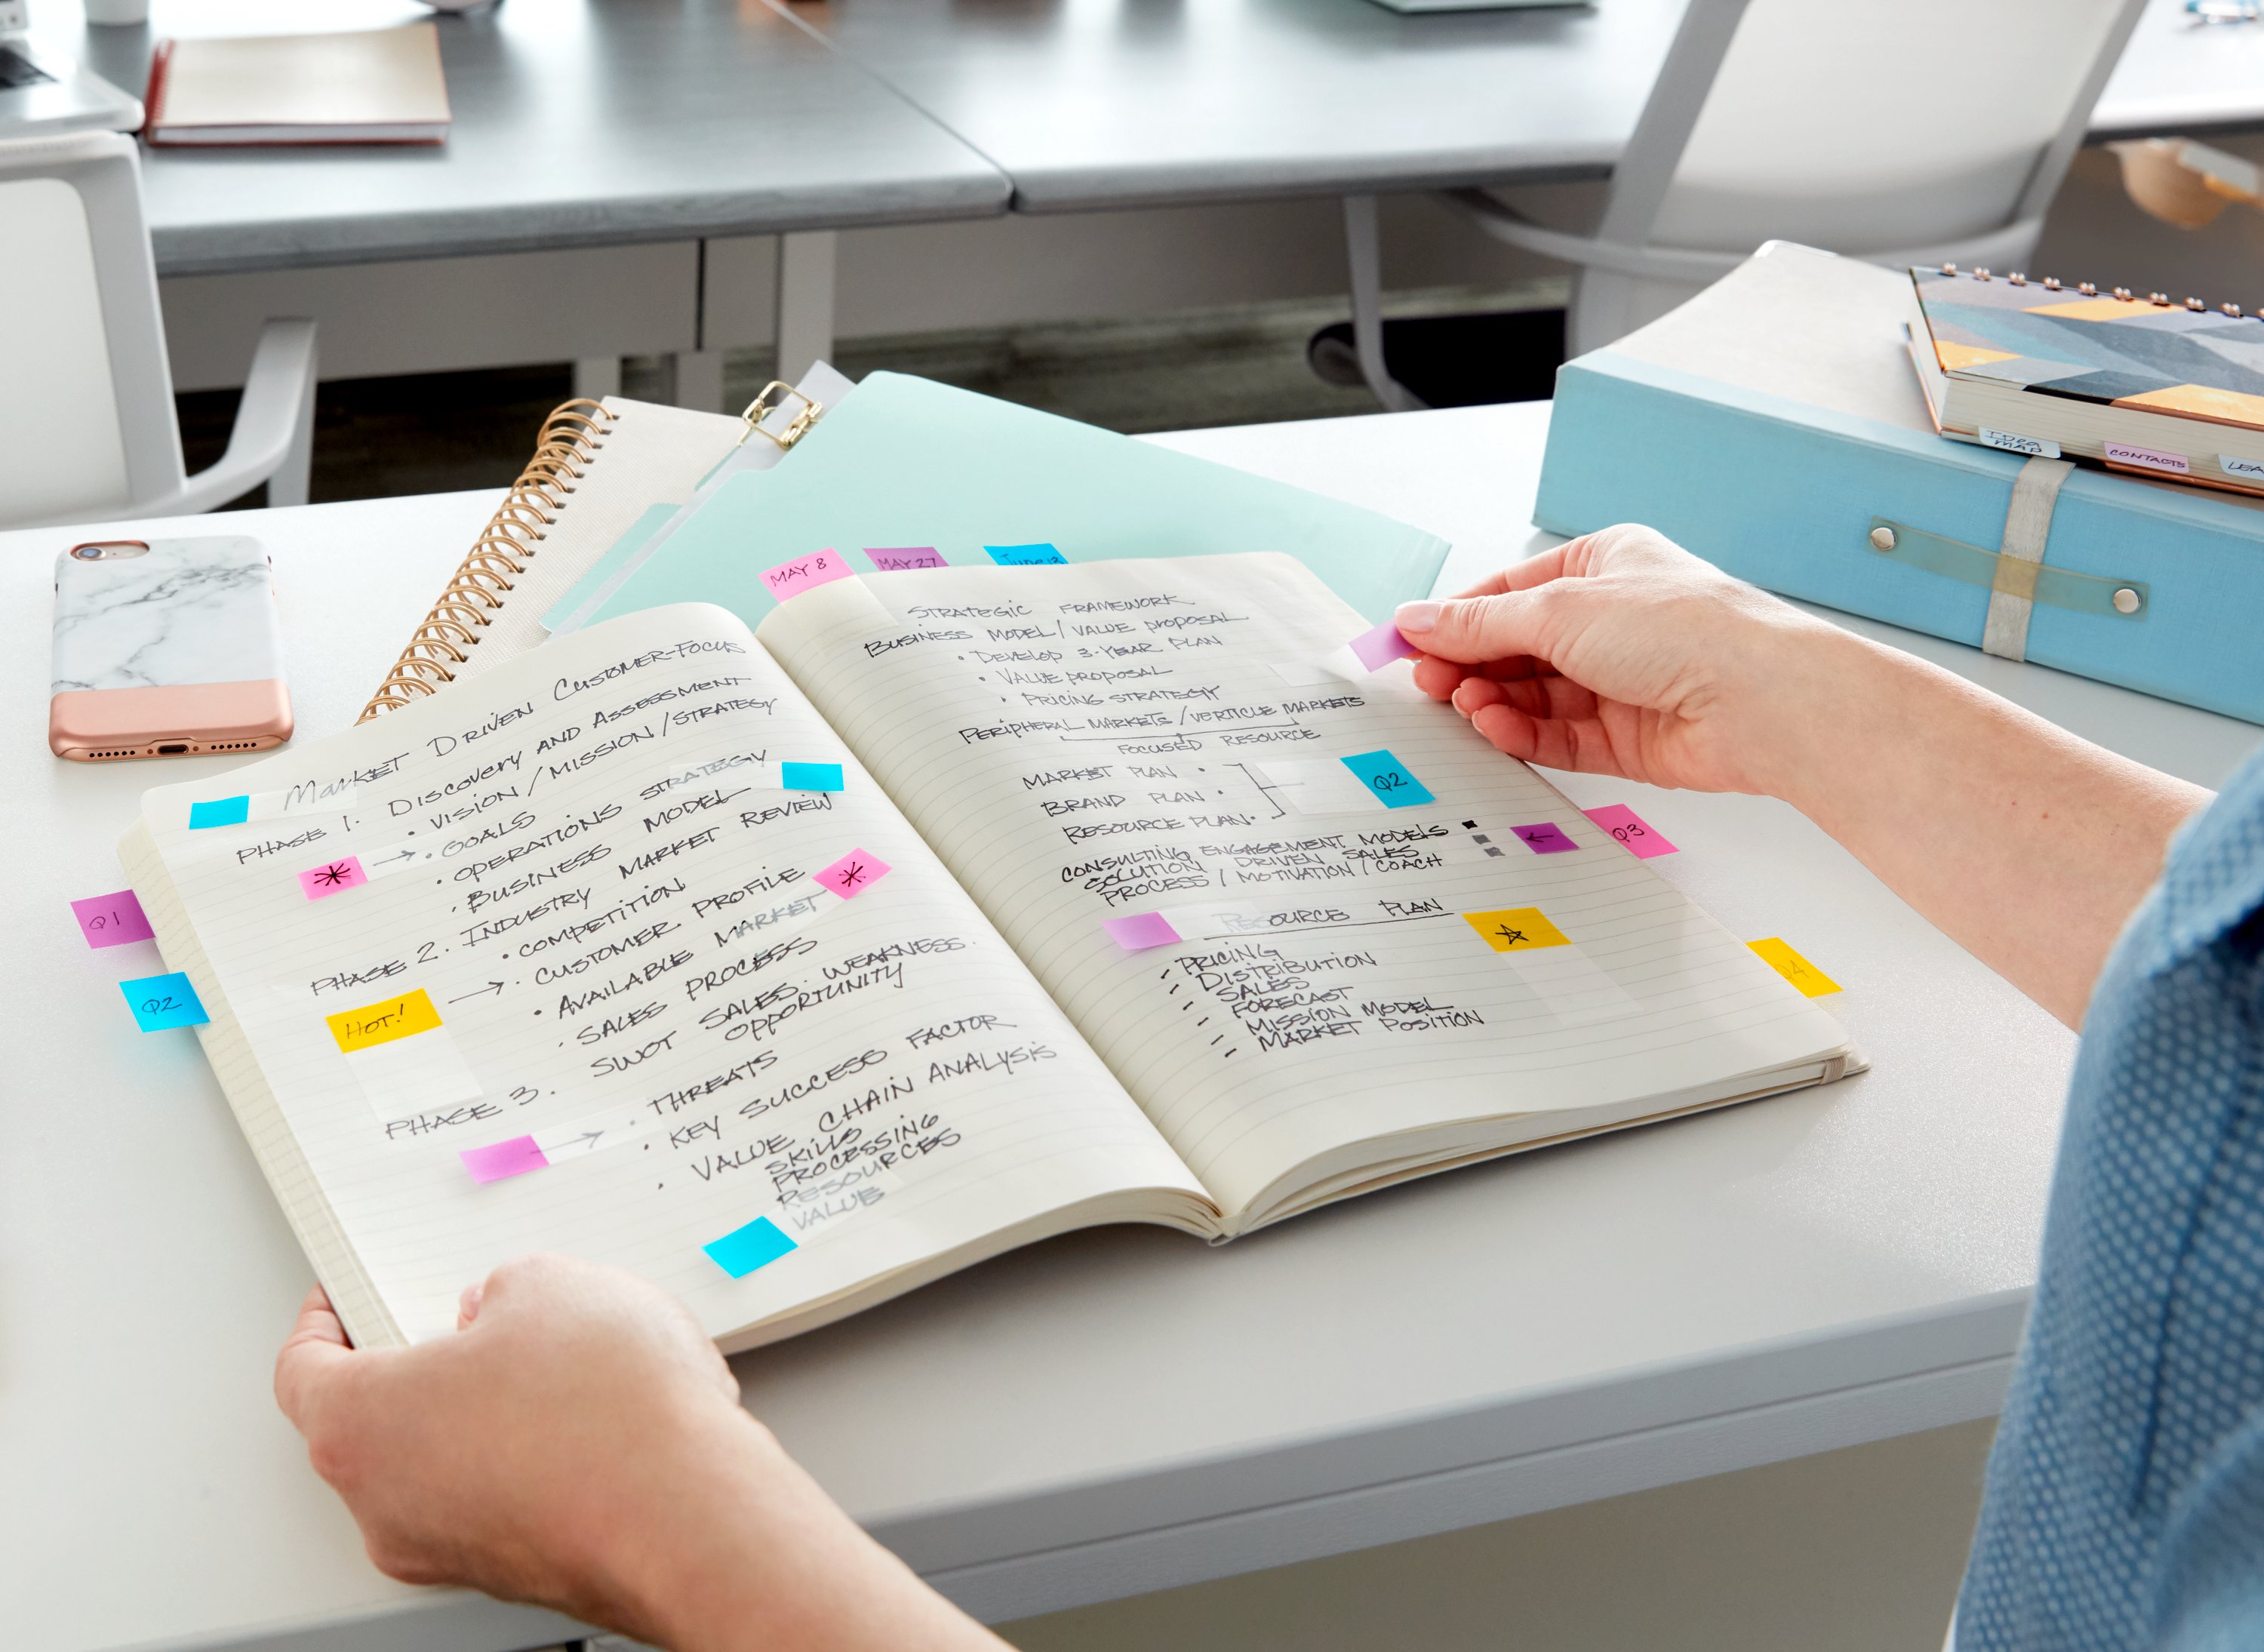 MAY 8
MAY 27
JUNE 12
Market Driven Customer-Focus
PHASE 1. Discovery AND Assessment
• VISION / MISSION / STRATEGY
* → • GOALS
• OPERATIONS STRATEGY
• BUSINESS MODEL
PHASE 2. INDUSTRY MARKET REVIEW
• COMPETITION
HOT! → • CUSTOMER PROFILE *
• AVAILABLE MARKET
• SALES PROCESS
PHASE 3. SWOT SALES. WEAKNESS.
OPPORTUNITY
→ • THREATS
• KEY SUCCESS FACTOR
• VALUE CHAIN ANALYSIS
SKILLS
PROCESSING
RESOURCES
VALUE
Q1
Q2
STRATEGIC FRAMEWORK
BUSINESS MODEL / VALUE PROPOSAL
• DEVELOP 3-YEAR PLAN
• VALUE PROPOSAL
• PRICING STRATEGY
PERIPHERAL MARKETS / VERTICLE MARKETS
FOCUSED RESOURCE
MARKET PLAN •
BRAND PLAN •
RESOURCE PLAN •
Q2
CONSULTING ENGAGEMENT MODELS
SOLUTION DRIVEN SALES
PROCESS / MOTIVATION / COACH
←
Q3
RESOURCE PLAN
- PRICING
- DISTRIBUTION
- SALES
- FORECAST
- MISSION MODEL
- MARKET POSITION
Q4
IDEA
MAP
CONTACTS